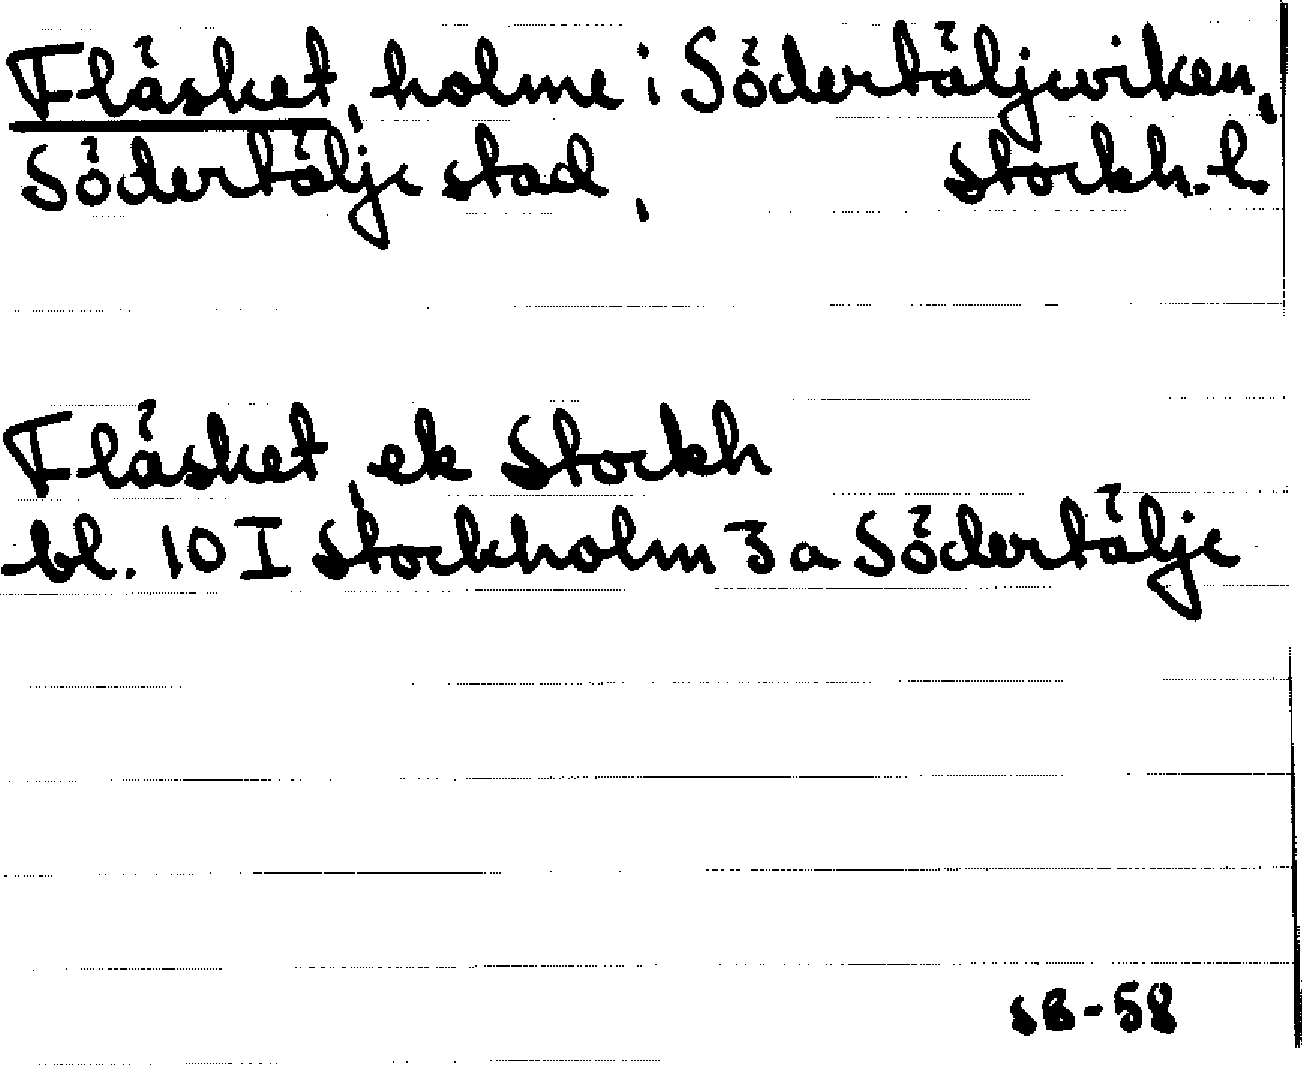 Fläsket, holme i Södertäljeviken,
Södertälje stad, Stockh. l.
Fläsket, ek Stockh
bl. 10 I Stockholm 3 a Södertälje
SB-58